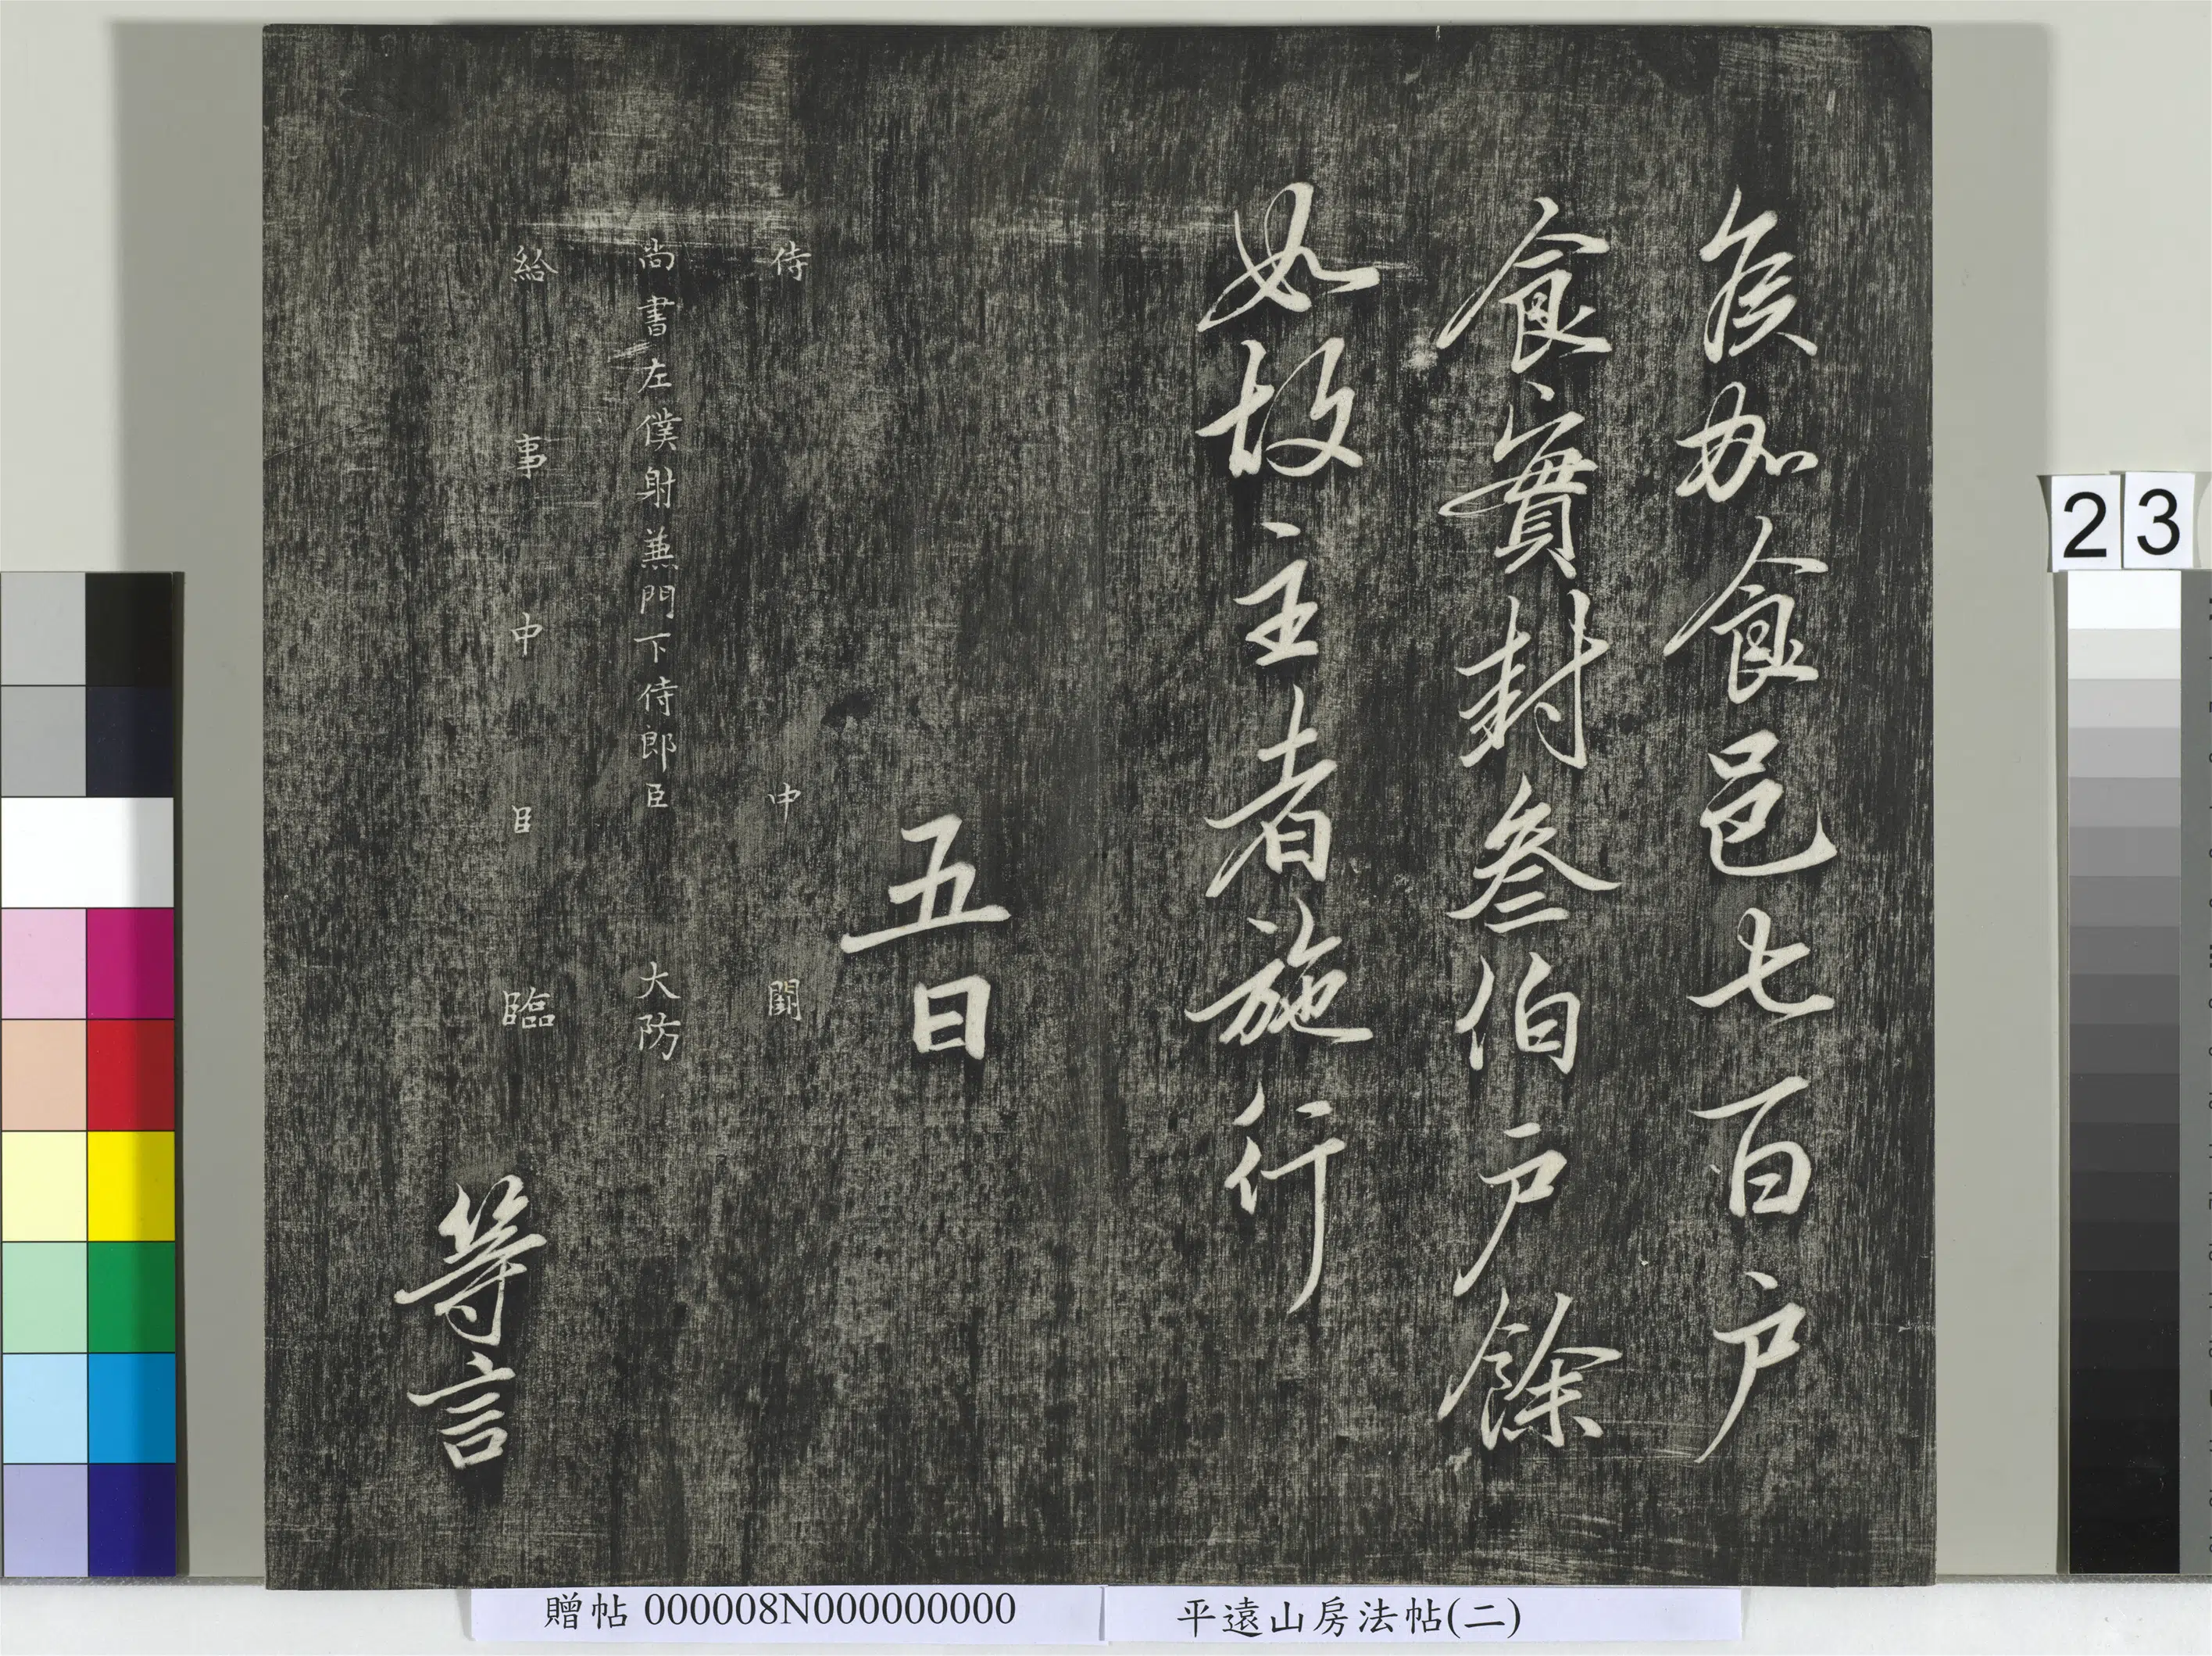 侯加食邑七百户
食實封叁伯户餘
如故主者施行
五日
侍中闕
尚書左僕射兼門下侍郎臣大防
給事中臣臨
等言
23
贈帖 000008N000000000
平遠山房法帖(二)